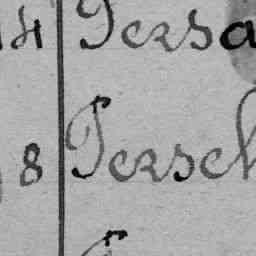 4 Persa
8 Persch